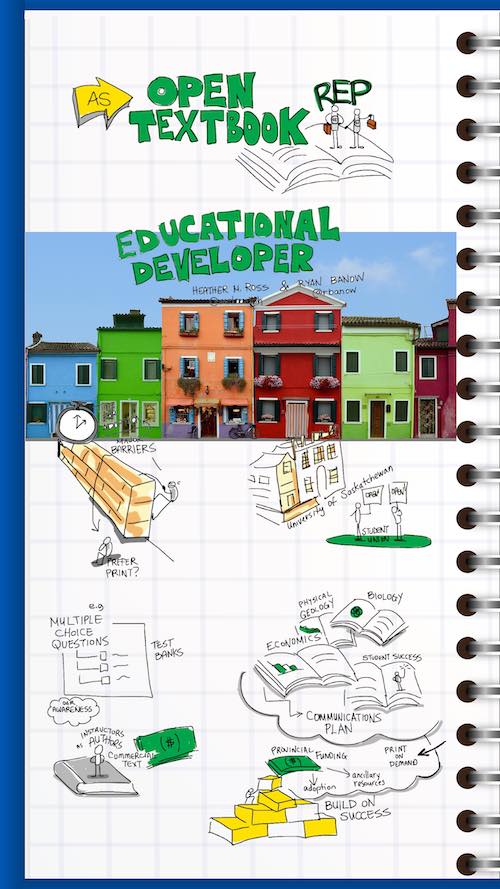 AS
OPEN
TEXTBOOK
REP
EDUCATIONAL
DEVELOPER
HEATHER M. ROSS & RYAN BANOW
@rbanow
BARRIERS
PREFER
PRINT?
University of Saskatchewan
OPEN
OPEN
STUDENT
UNION
e.g.
MULTIPLE
CHOICE
QUESTIONS
TEST
BANKS
AWARENESS
INSTRUCTORS
as AUTHORS
COMMERCIAL
TEXT
$
PHYSICAL
GEOLOGY
BIOLOGY
ECONOMICS
STUDENT SUCCESS
COMMUNICATIONS
PLAN
PROVINCIAL FUNDING
adoption
ancillary
resources
PRINT
ON
DEMAND
BUILD ON
SUCCESS